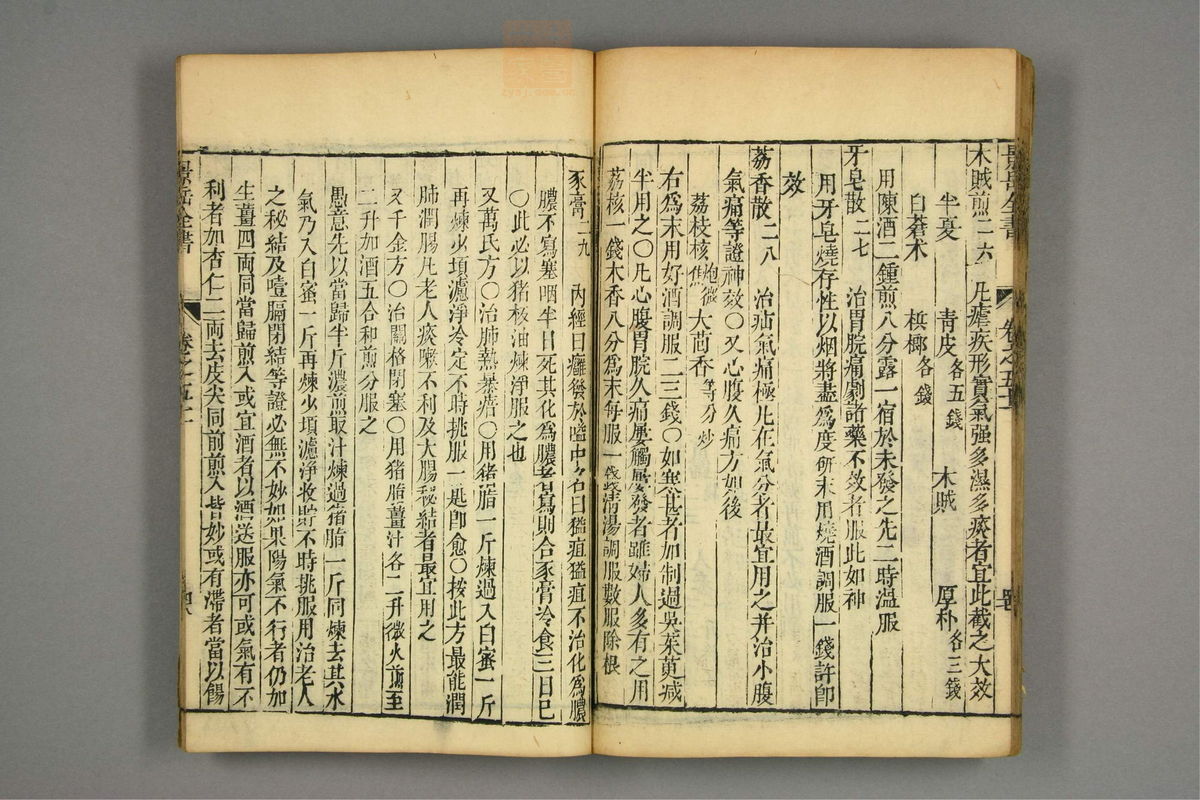 木賊煎二六　凡瘧疾形實氣强多濕多痰者宜此截之大效
半夏　青皮各五錢　木賊　厚朴各三錢
白蒼术　梹榔各一錢
用陳酒二鍾煎八分露一宿於未發之先二時温服
牙皂散二七　治胃脘痛劇諸藥不效者服此如神
用牙皂燒存性以烟將盡爲度研末用燒酒調服一錢許卽
效
荔香散二八　治疝氣痛極凡在氣分者最宜用之并治小腹
氣痛等證神效〇又心腹久痛方如後
荔枝核炮微焦　大茴香等分炒
右爲末用好酒調服二三錢〇如寒甚者加制過吳茱萸减
半用之〇凡心腹胃脘久痛屢觸屢發者雖婦人多有之用
荔核一錢木香八分爲末每服一錢清湯調服數服除根
豕膏二九　內經曰癰發於嗌中名曰猛疽猛疽不治化爲膿
膿不寫塞咽半日死其化爲膿者寫則合豕膏冷食三日已
〇此必以猪板油煉淨服之也
又萬氏方〇治肺熱暴瘖〇用猪脂一斤煉過入白蜜一斤
再煉少頃濾淨冷定不時挑服一匙卽愈〇按此方最能潤
肺潤腸凡老人痰嗽不利及大腸秘結者最宜用之
又千金方〇治關格閉塞〇用猪脂薑汁各二升微火煎至
二升加酒五合和煎分服之
愚意先以當歸半斤濃煎取汁煉過猪脂一斤同煉去其水
氣乃入白蜜一斤再煉少頃濾淨收貯不時挑服用治老人
之秘結及噎膈閉結等證必無不妙如果陽氣不行者仍加
生薑四兩同當歸煎入或宜酒者以酒送服亦可或氣有不
利者加杏仁二兩去皮尖同前煎入皆妙或有滯者當以餳
景岳全書　卷之五十一　四八